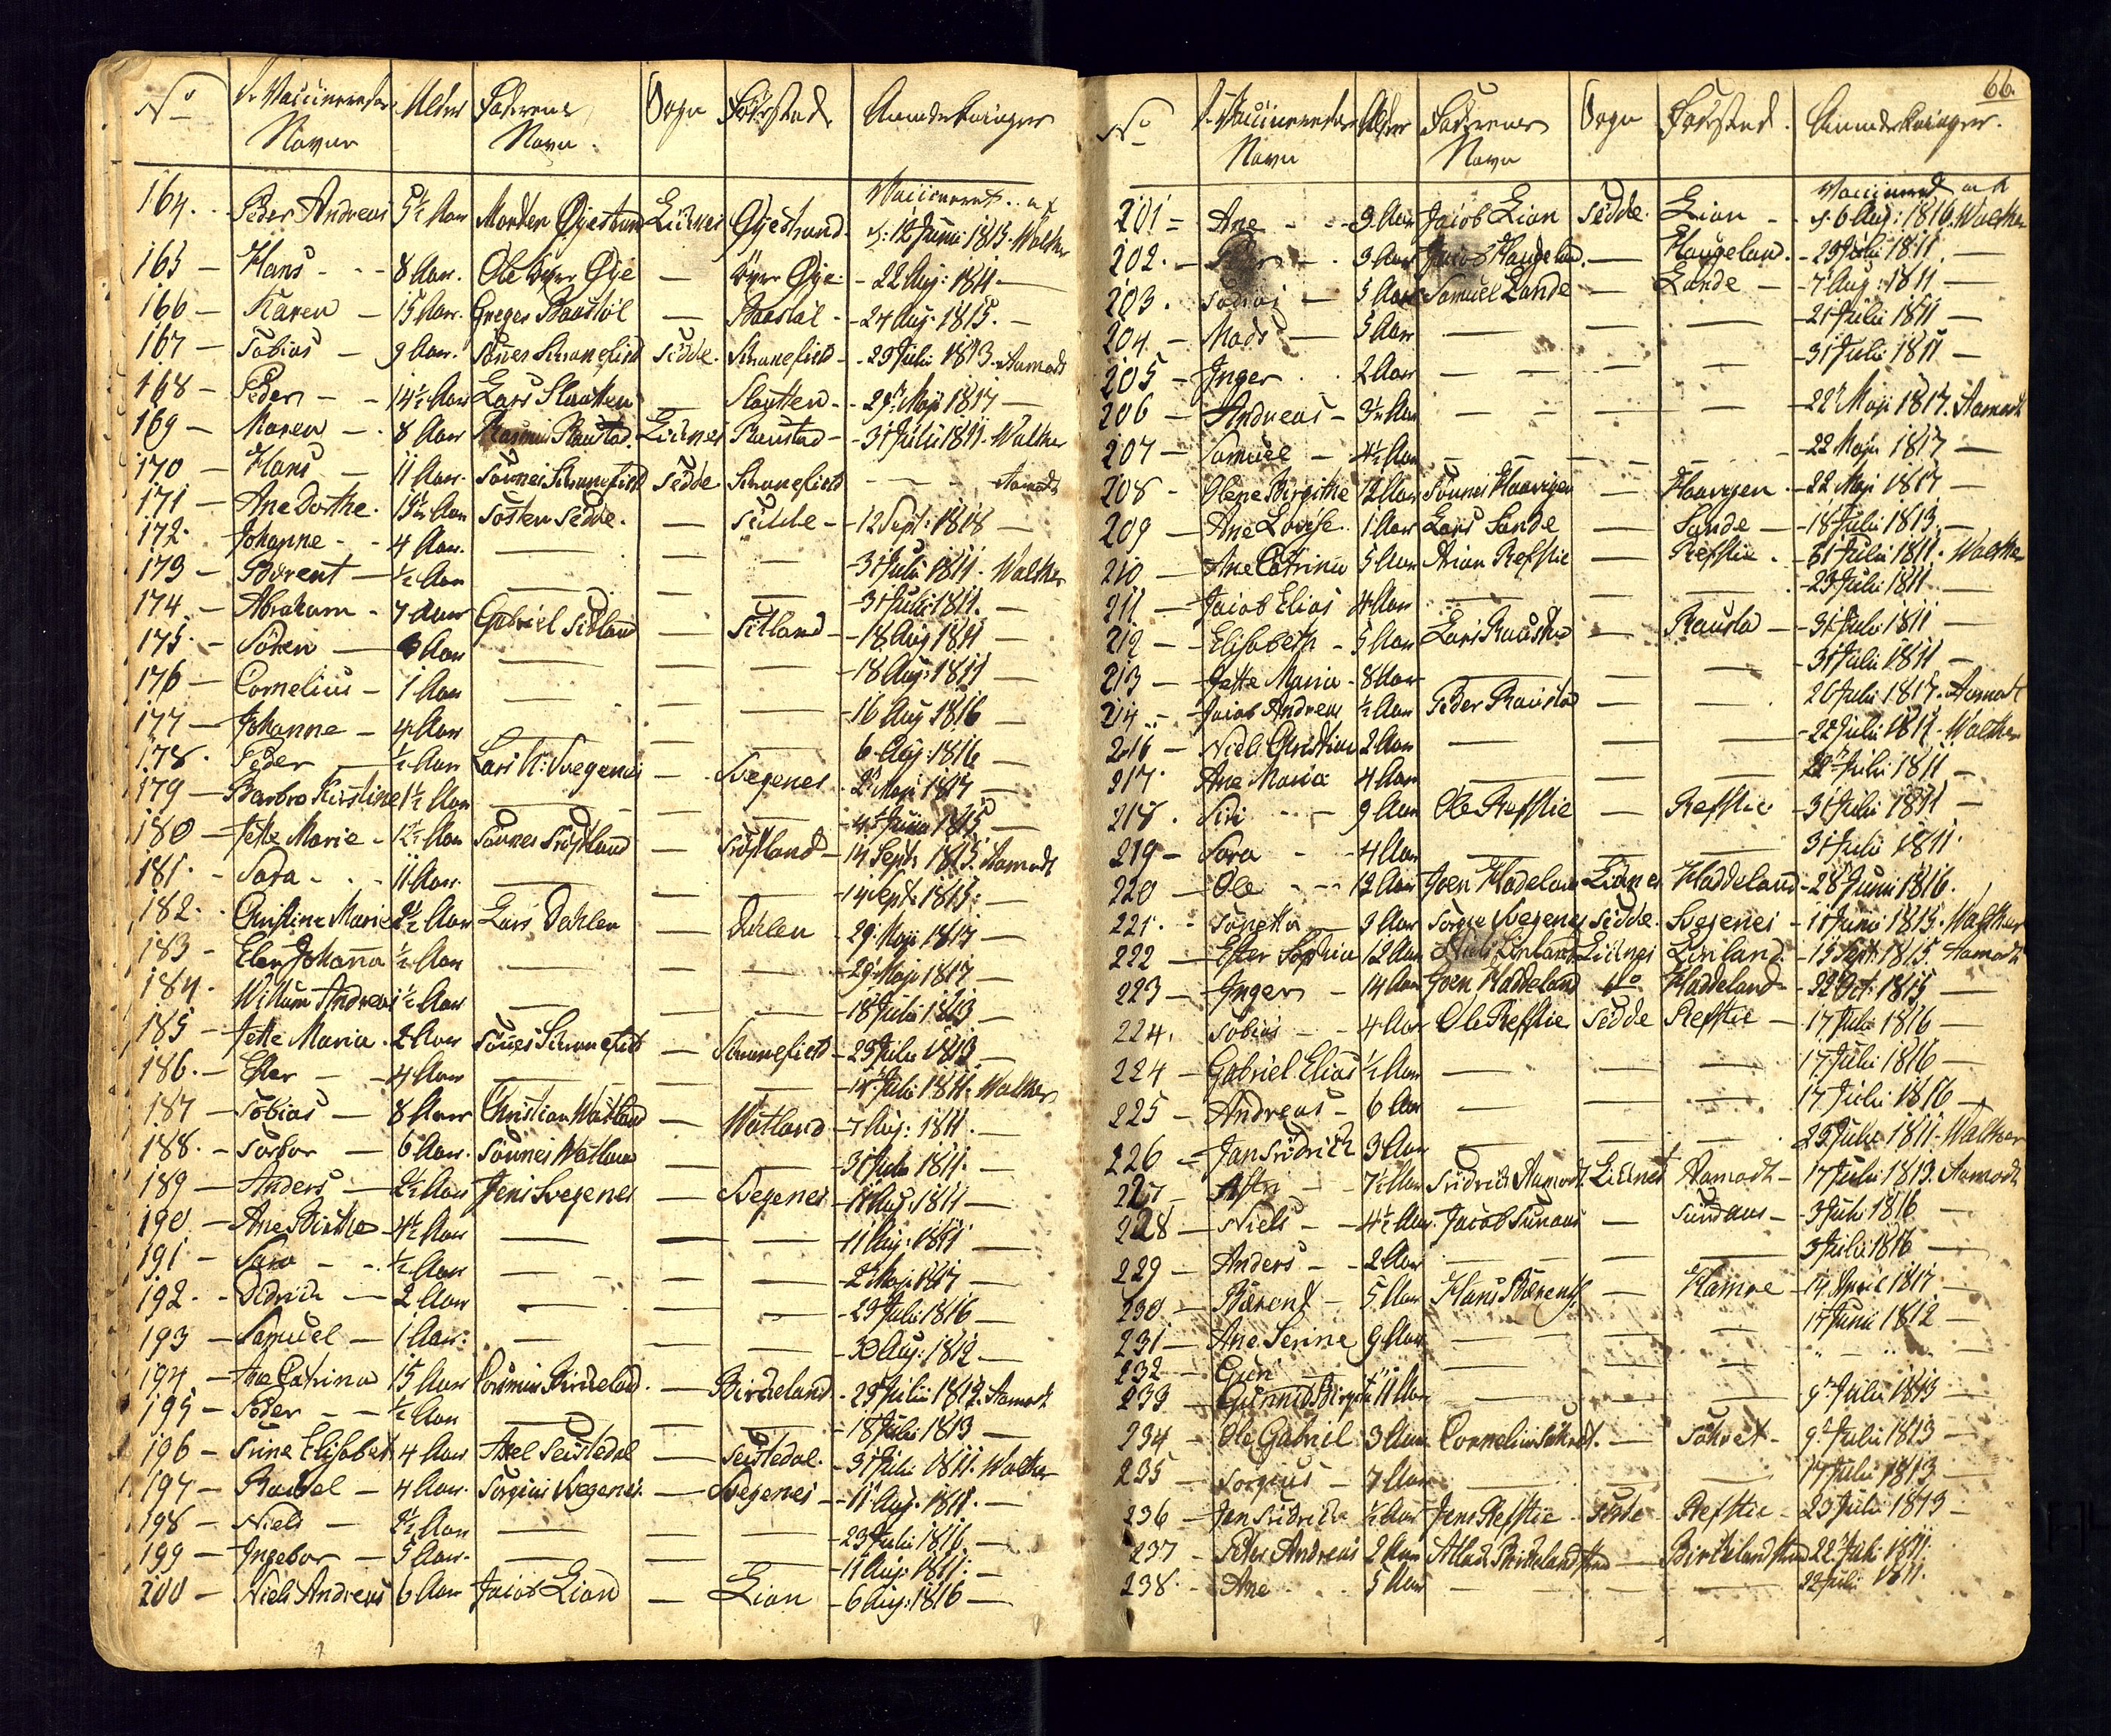 No de Vaccineredes Navne Alder Faderens Navn. Sogn Fødested Anmærkninger
Vaccineret af
164. Peder Andreas 5½ Aar Morten Øyestrand Liknes Øyestrand d: 12 Junii 1813. Walther
165 – Hans 8 Aar. Ole Øvre Øye – Øvre Øye – 22 Aug: 1811 –
166 – Karen – 15 Aar. Greger Baastøl – Baastøl – 24 Aug. 1815. –
167 – Tobias – 9 Aar. Tønnes Schranefield Fedde. Schranefield – 29 Julii 1813. Aamodt
168 – Peder – 14½ Aar Lars Slautten – Slautten – 29 Maji 1817 –
169 – Maren – 8 Aar Rasmus Raustad. Liknes Raustad – 31 Julii 1811. Walther
170 – Hans – 11 Aar. Tønnes Schranefield Fedde Schranefield – – – Aamodt
171 – Ane Dorthe. 13½ Aar Tosten Fedde. – Fedde – 12 Sept: 1818 –
172. Johanne – 4 Aar. – – – 31 Julii 1811. Walther
173 – Børent – ½ Aar – – – 31 Julii 1811. –
174 – Abraham – 7 Aar Gabriel Sitland – Sitland – 18 Aug 1811 –
175. Sören – 3 Aar – – – 18 Aug: 1811 –
176 – Cornelius – 1 Aar – – – 16 Aug 1816 –
177 – Johanne – 4 Aar – – – 6 Aug: 1816 –
178. Peder – ½ Aar Lars N: Svegenes – Svegenes – 2 Maji 1817 –
179 – Barbro Kirstine 1½ Aar – – – 4 Junii 1815 –
180 – Jette Marie – 12½ Aar Tønnes Frøstland – Frøstland – 14 Sept: 1815. Aamodt
181. Sara – 11 Aar. – – – 14 Sept: 1815: –
182. Christine Marie 2½ Aar Lars Dahlen – Dahlen – 29 Maji 1817 –
183 – Elen Johanna ½ Aar – – – 29 Maji 1817 –
184. Willum Andreas ½ Aar – – – 18 Julii 1813 –
185 – Jette Maria. 2 Aar Tønnes Schranefield – Schranefield – 29 Julii 1813 –
186. Ester – 4 Aar – – – 14 Julii 1811. Walther
187 – Tobias – 8 Aar Christian Watland – Watland – 7 Aug: 1811. –
188. Torbor – 6 Aar. Tønnes Watland – – 31 Julii 1811. –
189 – Anders – 2½ Aar Jens Svegenes – Svegenes – 11 Aug: 1811 –
190. – Ane Birthe – 4½ Aar – – – 11 Aug: 1811 –
191 – Sara – ½ Aar – – – 2 Maji 1817 –
192. – Didrich – 2 Aar – – – 29 Julii 1816 –
193 – Samuel – 1 Aar: – – – 30 Aug: 1812 –
194 – Ane Catrina 15 Aar Rasmus Birkeland. – Birkeland. – 29 Julii 1812. Aamodt
195 – Peder – ½ Aar – – – 18 Julii 1813 –
196 – Trine Elisabet 4 Aar Axel Seistedal – Seistedal. – 31 Julii 1811. Walther
197 – Rachel – 4 Aar. Torgius Svegenes. – Svegenes – 11 Aug. 1811. –
198 – Niels – 2½ Aar – – – 23 Julii 1816. –
199 – Ingebor – 5 Aar. – – – 11 Aug: 1811: –
200 – Niels Andreas 6 Aar Jacob Lian – Lian – 6 Aug: 1816 –
66.
No de Vaccineredes Navn Alder Faderens Navn Sogn Fødested. Anmærkninger.
Vaccineret af
201 – Ane – 9 Aar Jacob Lian Fedde. Lian – d. 6 Aug: 1816. Walther
202. – 9 Aar Jacob Haugeland. – Haugeland. – 29 Julii 1811. –
203. Tobias – 5 Aar Samuel Lande – Lande – 7 Aug: 1811 –
204. – Mads – 5 Aar – – – 21 Julii 1811 –
205 – Inger 2 Aar – – – 31 Julii 1811 –
206 – Andreas – 3½ Aar – – – 22 Maji 1817. Aamodt
207 – Samuel – 4½ Aar – – – 22 Maji 1817 –
208 – Olene Birgithe 12 Aar Tønnes Haavigen – Haavigen – 22 Maji 1817 –
209 – Ane Lovise 1 Aar Lars Sande – Sande – 18 Julii 1813. –
210 – Ane Catrina 5 Aar Arian Refstie – Refstie. – 31 Julii 1811. Walther
211 – Jacob Elias 4 Aar – – – 29 Julii 1811. –
212 – Elisabeth – 5 Aar Lars Raustad – Rausta – 31 Julii 1811 –
213 – Jette Maria – 8 Aar – – – 31 Julii 1811 –
214 – Jacob Andreas ½ Aar Peder Raustad – – 26 Julii 1817. Aamodt
216 – Niels Christian 2 Aar – – – 22 Julii 1811. Walther
217. Ane Maria 4 Aar – – – 22 Julii 1811 –
218. Siri – 9 Aar Ole Refstie – Refstie – 31 Julii 1811 –
219 – Sara – 4 Aar – – – 31 Julii 1811.
220 – Ole – 12 Aar Joen Hadeland Liknes Haddeland – 28 Junii 1816.
221. – Tonetta 3 Aar Torgie Svegenes Fedde. Svegenes – 11 Junii 1815. Walther
222 – Ester Sophia 12 Aar Niels Linland Liknes Linland. – 13 Sept: 1815. Aamodt
223 – Inger – 14 Aar Goen Haddeland do Haddeland – 22 Oct: 1815 –
224. Tobias – 4 Aar Ole Refstie Fedde Refstie – 17 Julii 1816 –
224 – Gabriel Elias ½ Aar – – – 17 Julii 1816 –
225 – Andreas – 6 Aar – – – 17 Julii 1816 –
226 – Jan Fridrich 3 Aar – – – 29 Julii 1811. Walther
227 – Astri – 7½ Aar Fridrich Aamodt Liknes Aamodt – 17 Julii 1813. Aamodt
228 – Niels – 4½ Aar. Jacob Sunaas – Sundaas – 3 Julii 1816
229 – Anders – 2 Aar – – – 3 Julii 1816 –
230 – Bærent – 5 Aar Hans Bærents – Hamre – 14 April 1817 –
231 – Ane Serine 9 Aar – – – 14 Junii 1812 –
232 – Guri " – – – " " " –
233 – Gunnild Birgita 11 Aar – – – 9 Julii 1813 –
234 – Ole Gabriel 3 Aar Cornelius – 9 Julii 1813 –
235 – Torgius – 7 Aar – – – 17 Julii 1813 –
236 – Jan Fridrich ½ Aar Jens Refstie – Fedde – Refstie – 23 Julii 1813 –
237 – Peter Andreas 2 Aar Atlack Birkelandstrand – Birkelandstrand 22 Julii 1811.
238. – Ane 5 Aar – – – 22 Julii 1811.